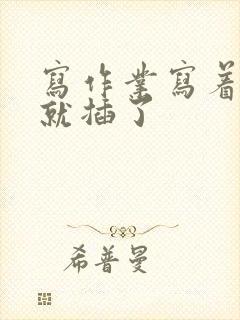 寫作業寫着
就插了
希普曼